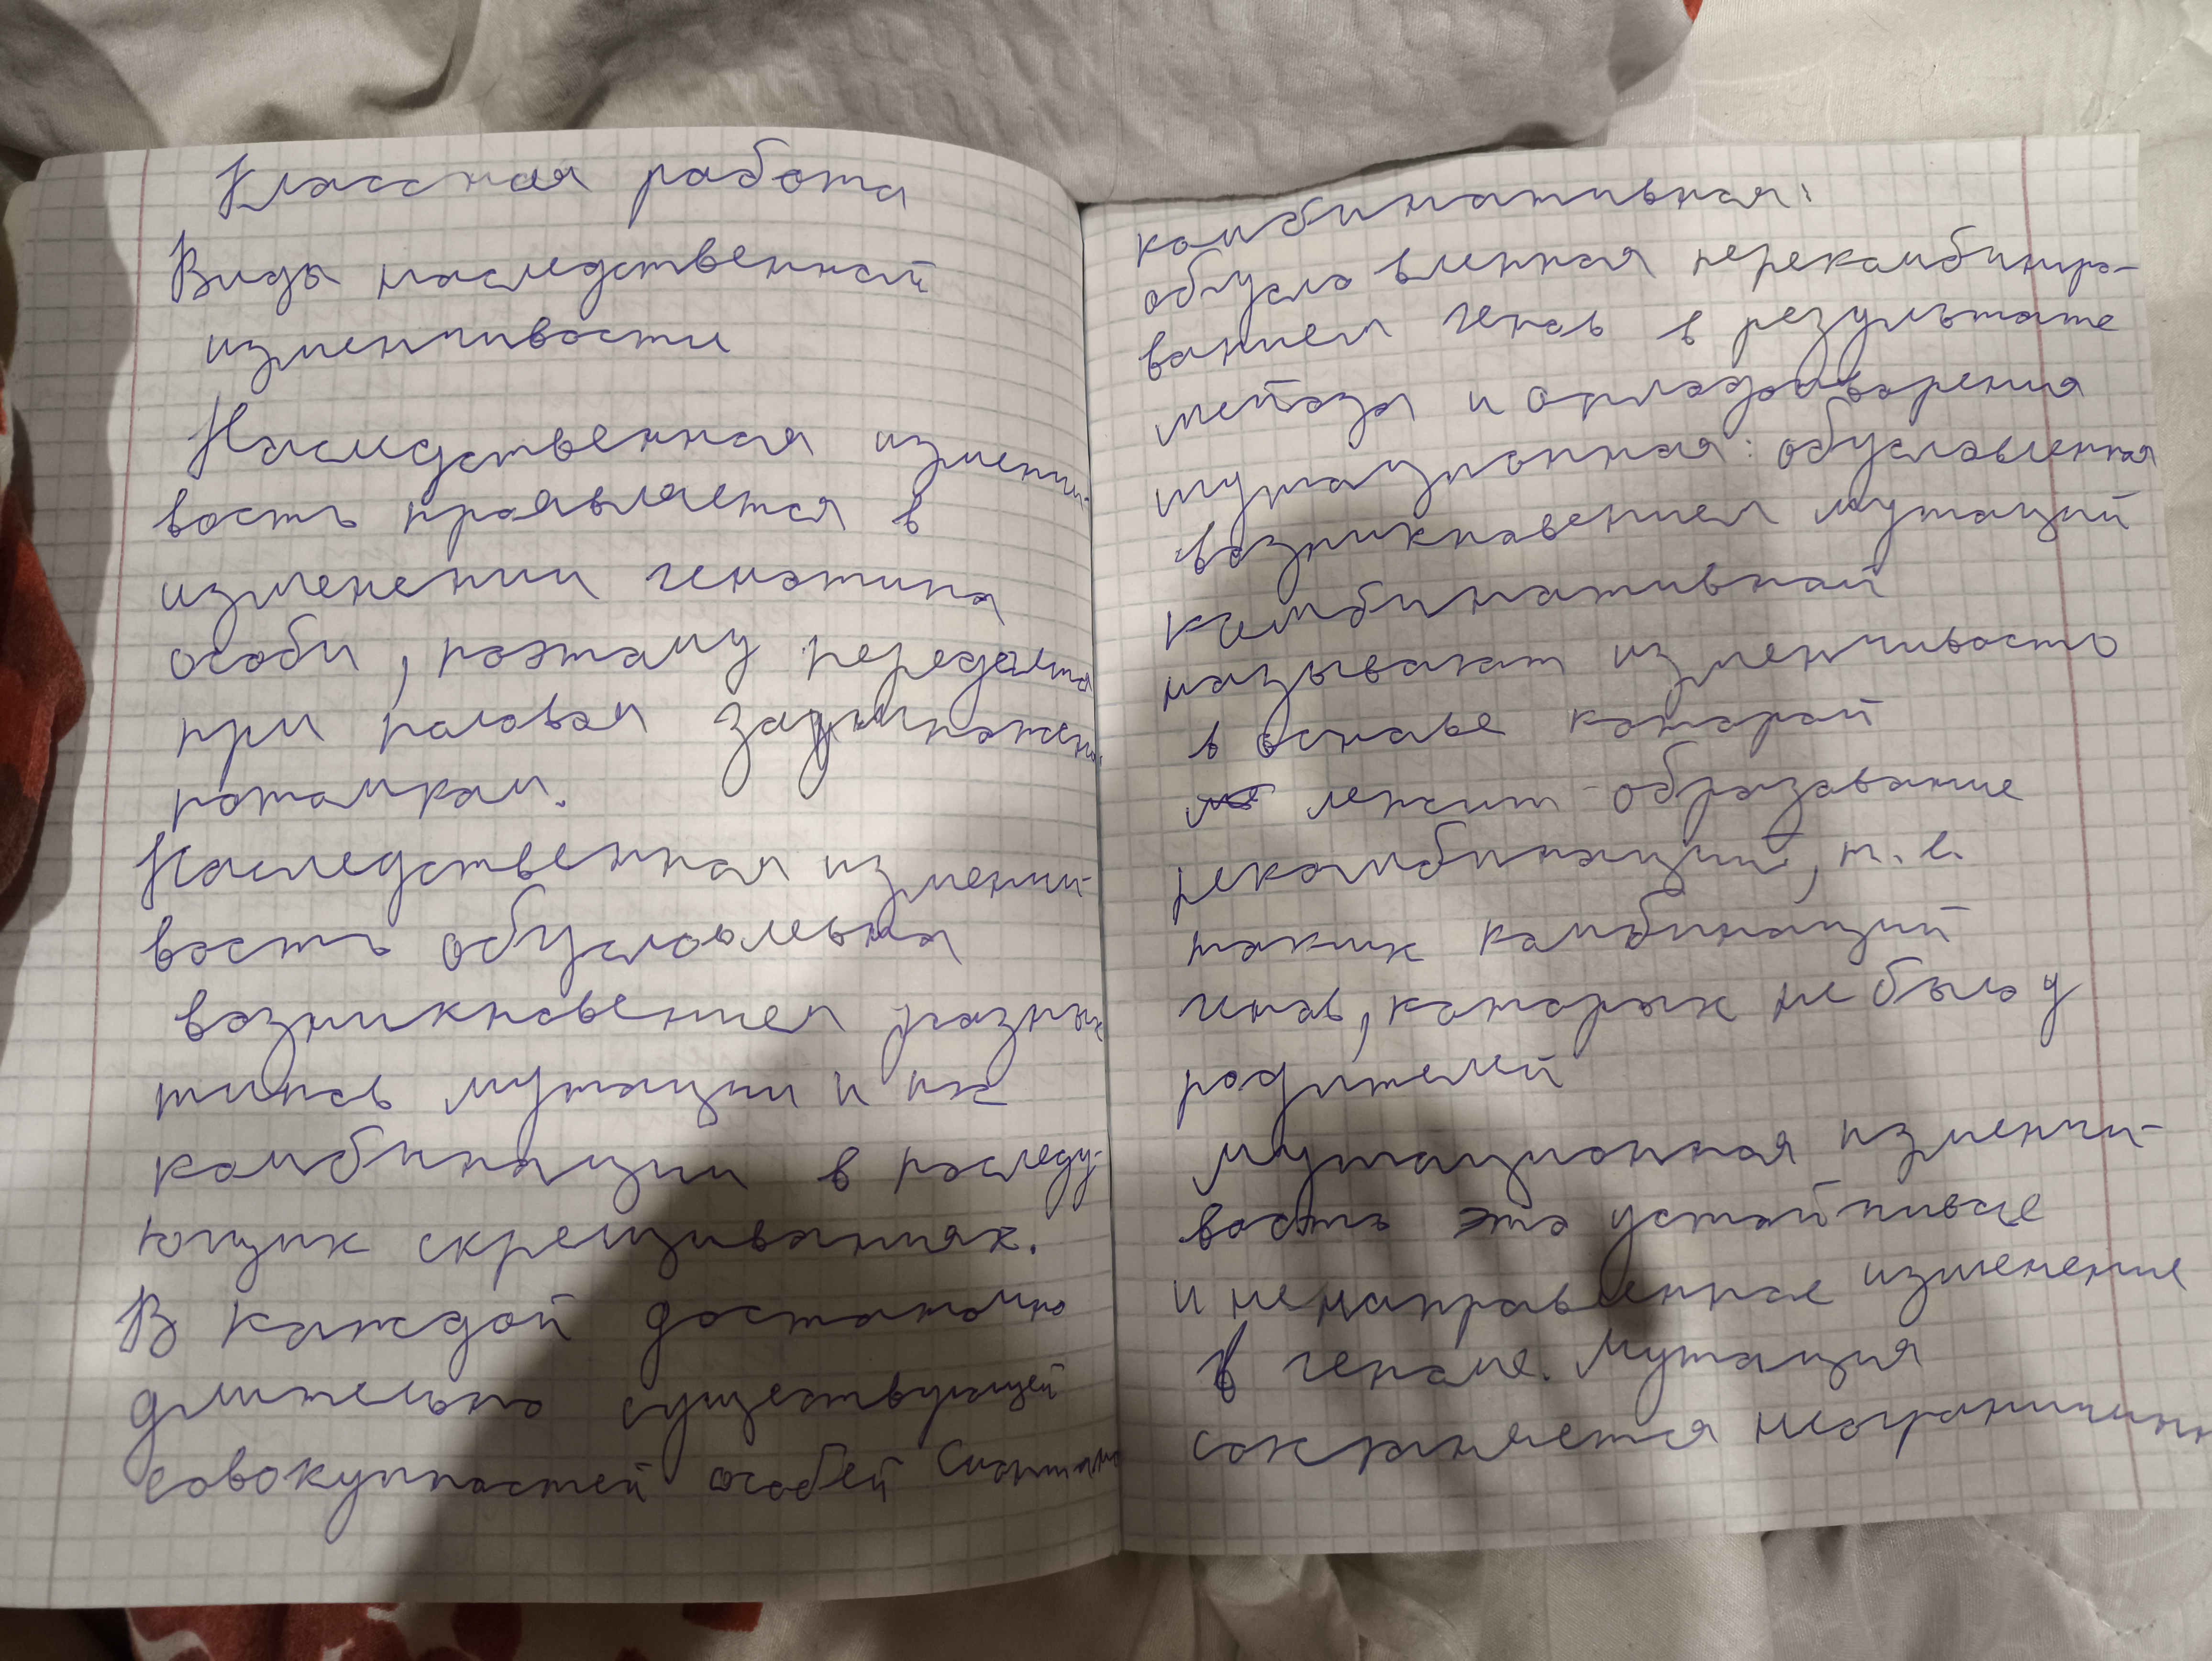 Классная работа
Виды наследственной
изменчивости
Наследственная изменчи-
вость проявляется в
изменении генотипа
особи, поэтому передается
при половом размножении
потомкам.
Наследственная изменчи-
вость обусловлена
возникновением разных
типов мутации и их
комбинации в последу-
ющих скрещиваниях.
В каждой достаточно
длительно существующей
совокупностей особей спонтанно
комбинативная:
обусловленная перекомбиниро-
ванием генов в результате
мейоза и оплодотворения
мутационная: обусловленная
возникновением мутаций
Комбинативной
называют изменчивость
в основе которой
лежит образование
рекомбинаций, т.е.
таких комбинаций
генов, которых не было у
родителей
мутационная изменчи-
вость это устойчивое
и ненаправленное изменение
в геноме. Мутация
сохраняется неограниченно